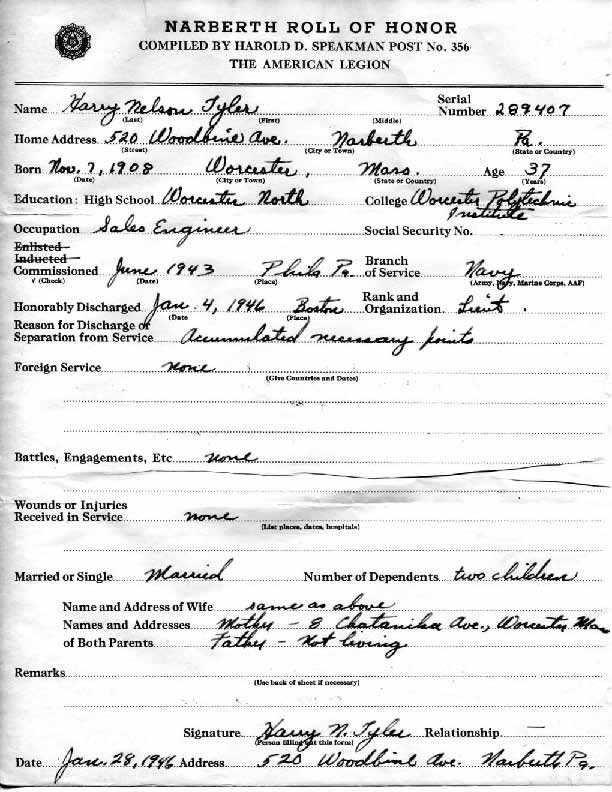 NARBERTH ROLL OF HONOR
COMPILED BY HAROLD D. SPEAKMAN POST No. 356
THE AMERICAN LEGION
Name Harry Nelson Tyler Serial Number 289407
(Last) (First) (Middle)
Home Address 520 Woodbine Ave. Narberth Pa.
(Street) (City or Town) (State or Country)
Born Nov. 7, 1908 Worcester, Mass. Age 37
(Date) (City or Town) (State or Country) (Years)
Education: High School Worcester North College Worcester Polytechnic Institute
Occupation Sales Engineer Social Security No.
Enlisted
Inducted
Commissioned June 1943 Phila Pa. Branch of Service Navy
√ (Check) (Date) (Place) (Army, Navy, Marine Corps, AAF)
Honorably Discharged Jan. 4, 1946 Boston Rank and Organization Lieut.
(Date (Place)
Reason for Discharge or
Separation from Service Accumulated necessary points
Foreign Service none
(Give Countries and Dates)
Battles, Engagements, Etc none
Wounds or Injuries
Received in Service none
(List places, dates, hospitals)
Married or Single Married Number of Dependents two children
Name and Address of Wife same as above
Names and Addresses Mother - 8 Chatanika Ave., Worcester Mass
of Both Parents Father - Not living
Remarks
(Use back of sheet if necessary)
Signature Harry N. Tyler Relationship —
(Person filling out this form)
Date Jan. 28, 1946 Address 520 Woodbine Ave. Narberth Pa.